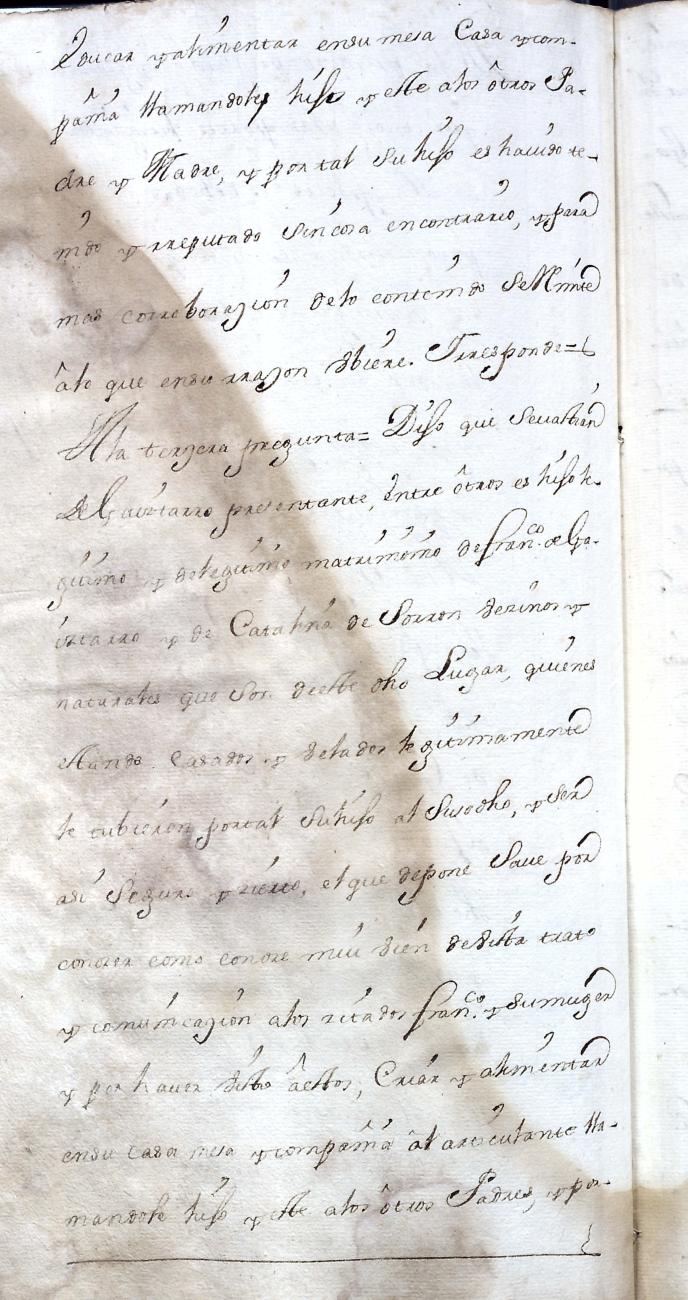 Educar y alimentar en su mesa Casa y com-
pañia llamandole hijo y este a los ôtros Pa-
dre y Madre, y por tal su hijo es havido te-
nido y rreputado sin cosa en contrario, y para
mas corroborazion de lo contenido se Remite
âlo que en su rrazon dixere. Y responde=
A la terzera pregunta= Dijo que Sevastian
de presentante, entre ôtros es hijo le-
gitimo y de legitimo matrimonio de Franco. de
y de Catalina de vezinos y
naturales que son de este dho Lugar, quienes
estando Casados y velados legitimamente
le tubieron por tal su hijo al Susodho, y ser
asi Seguro y zierto, el que depone Save por
conozer como conoze mui bien de vista trato
y comunicazion a los zitados Franco. y su muger
y por haver visto â estos, Criar y alimentar
en su casa mesa y compañia âl articulante lla-
mandole hijo y este a los ôtros Padres, y por-